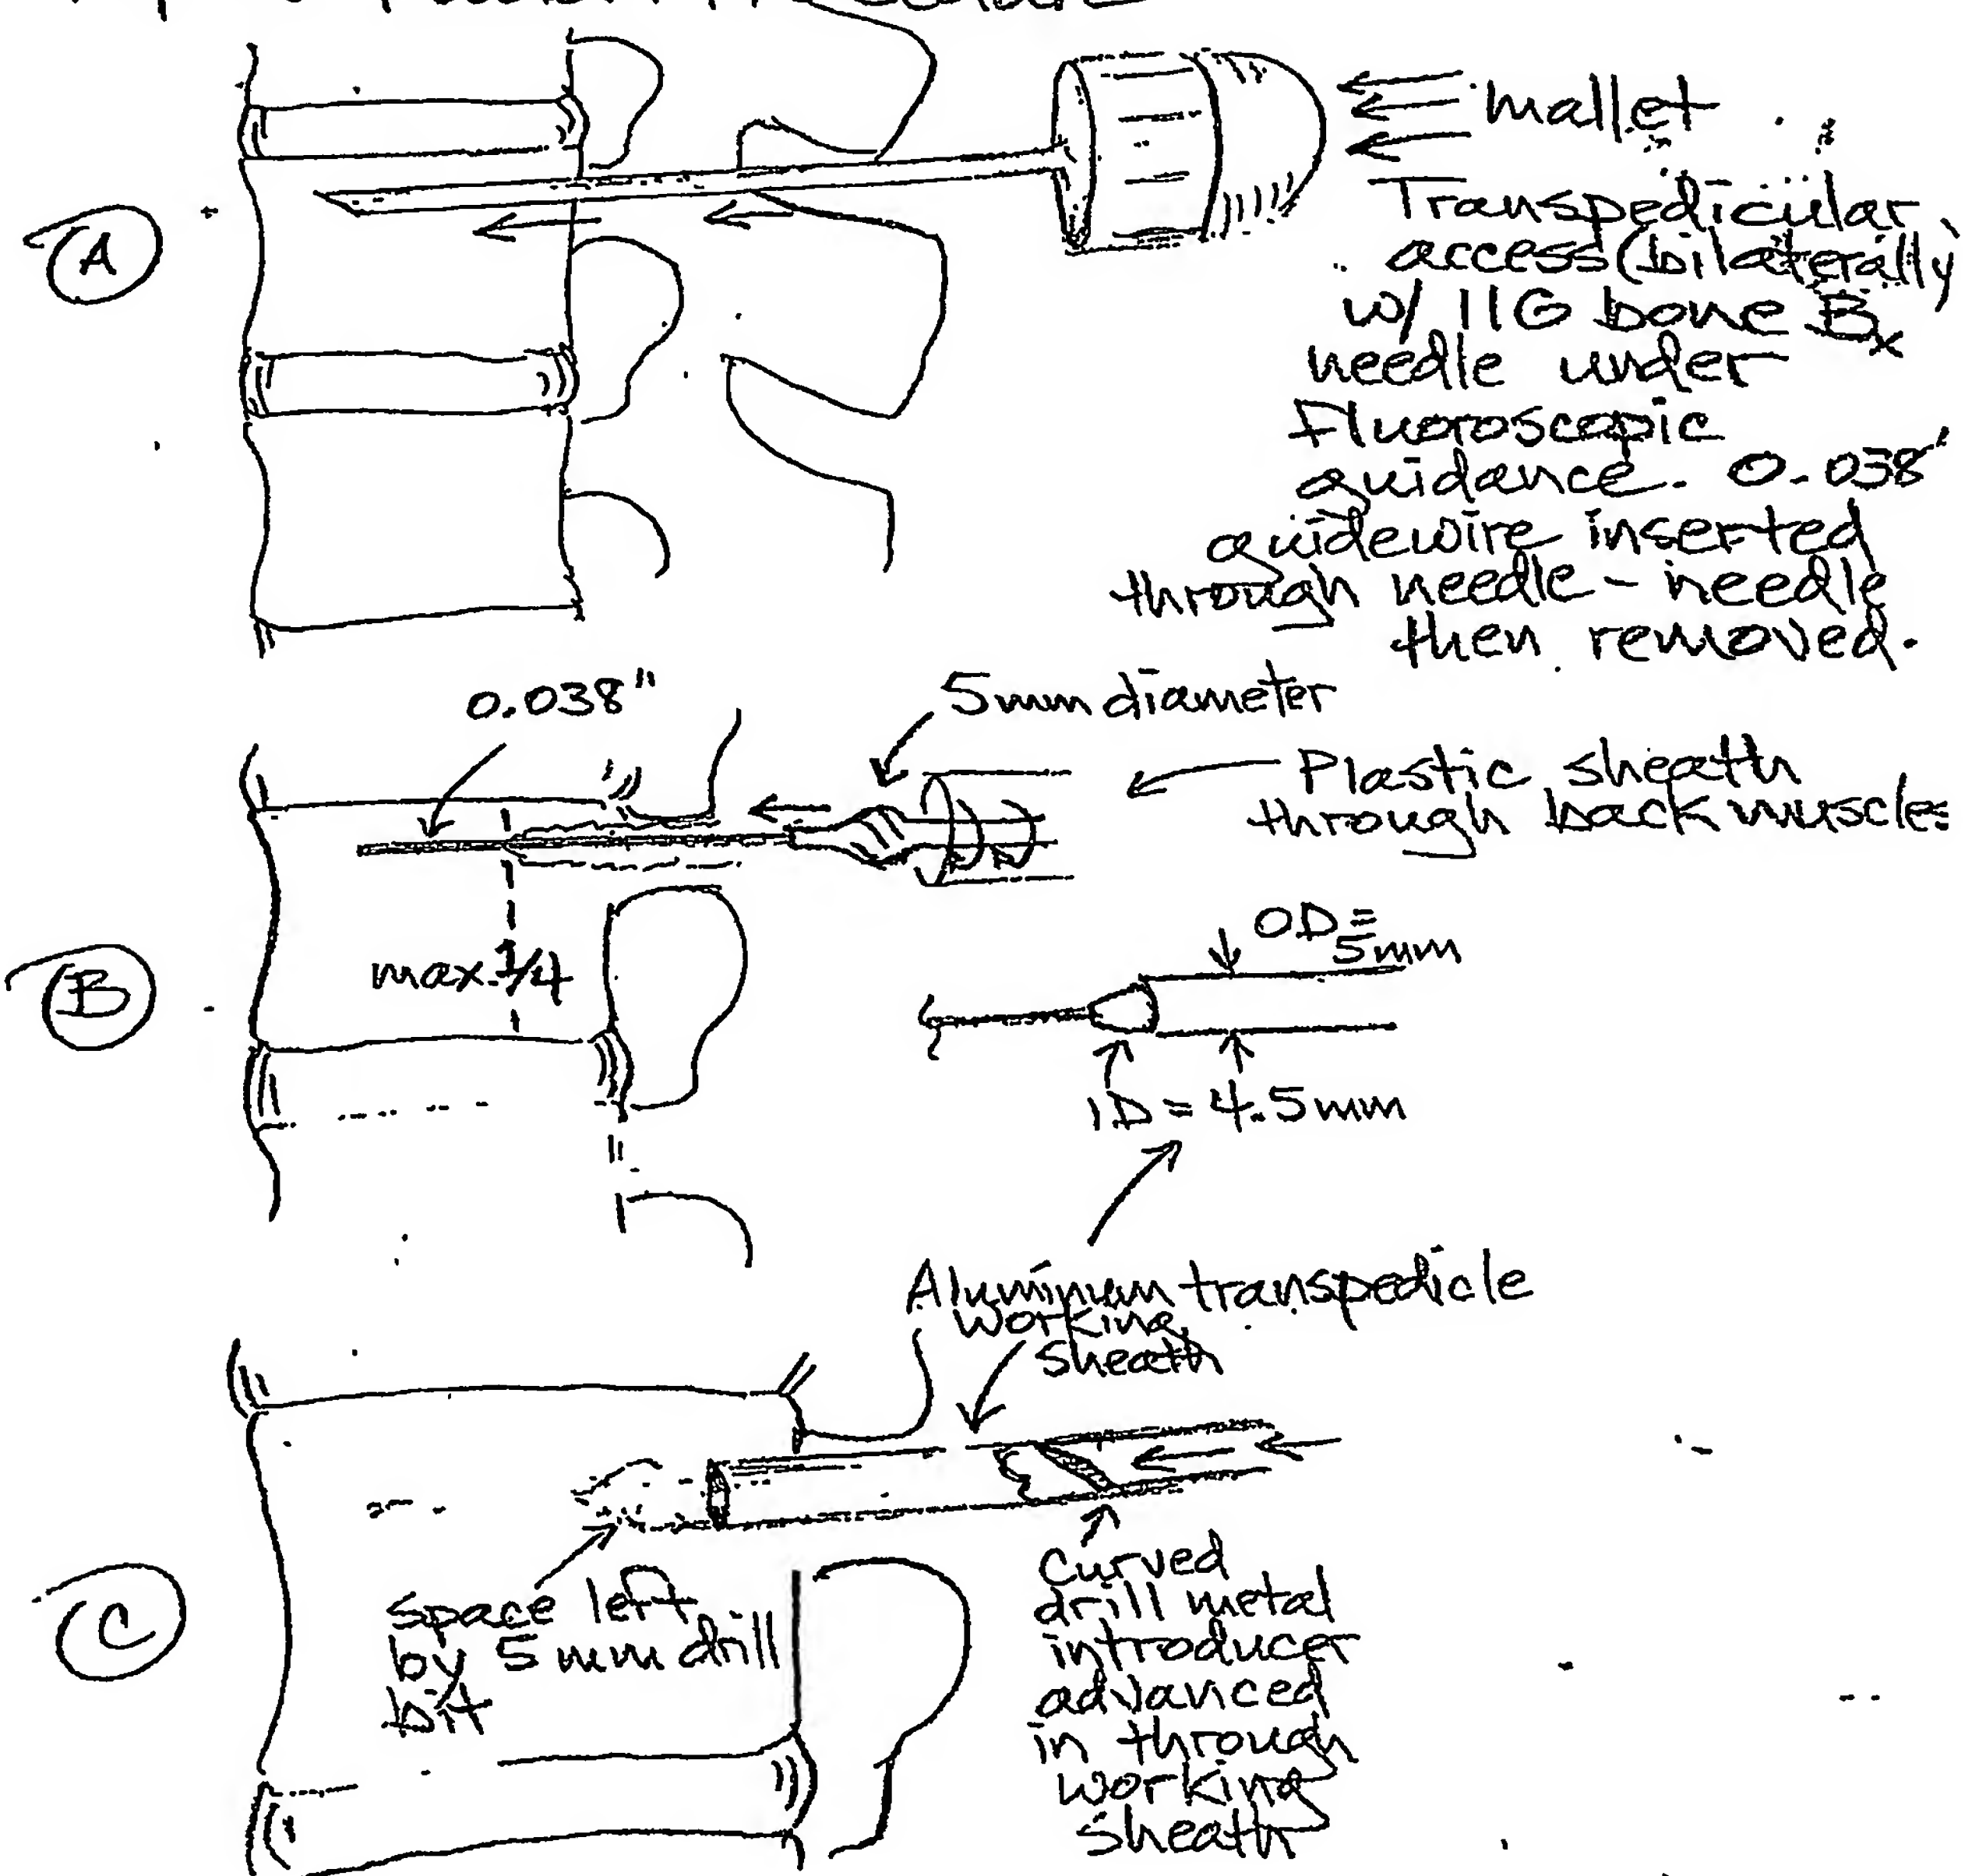 A
mallet
Transpedicular
access (bilaterally)
w/ 11G bone Bx
needle under
Fluoroscopic
guidance. 0.038"
guidewire inserted
through needle - needle
then removed.
0.038"
5mm diameter
Plastic sheath
through back muscles
B
max. 1/4
OD =
5mm
ID = 4.5mm
Aluminum transpedicle
working
sheath
C
space left
by 5 mm drill
bit
Curved
drill metal
introducer
advanced
in through
working
sheath